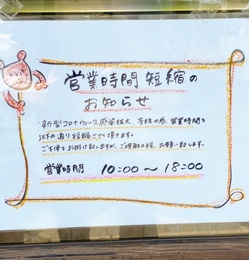 営業時間短縮の
お知らせ
・新型コロナウィルス感染拡大 予防の為、営業時間を
以下の通り短縮させて頂きます。
ご不便をお掛け致しますが、ご理解の程、お願い致します。
営業時間 10:00〜18:00